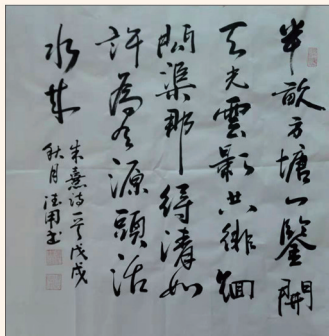 半畝方塘一鑒開
天光雲影共徘徊
問渠那得清如
許為有源頭活
水來
朱熹詩一首戊戌
秋月汪用書